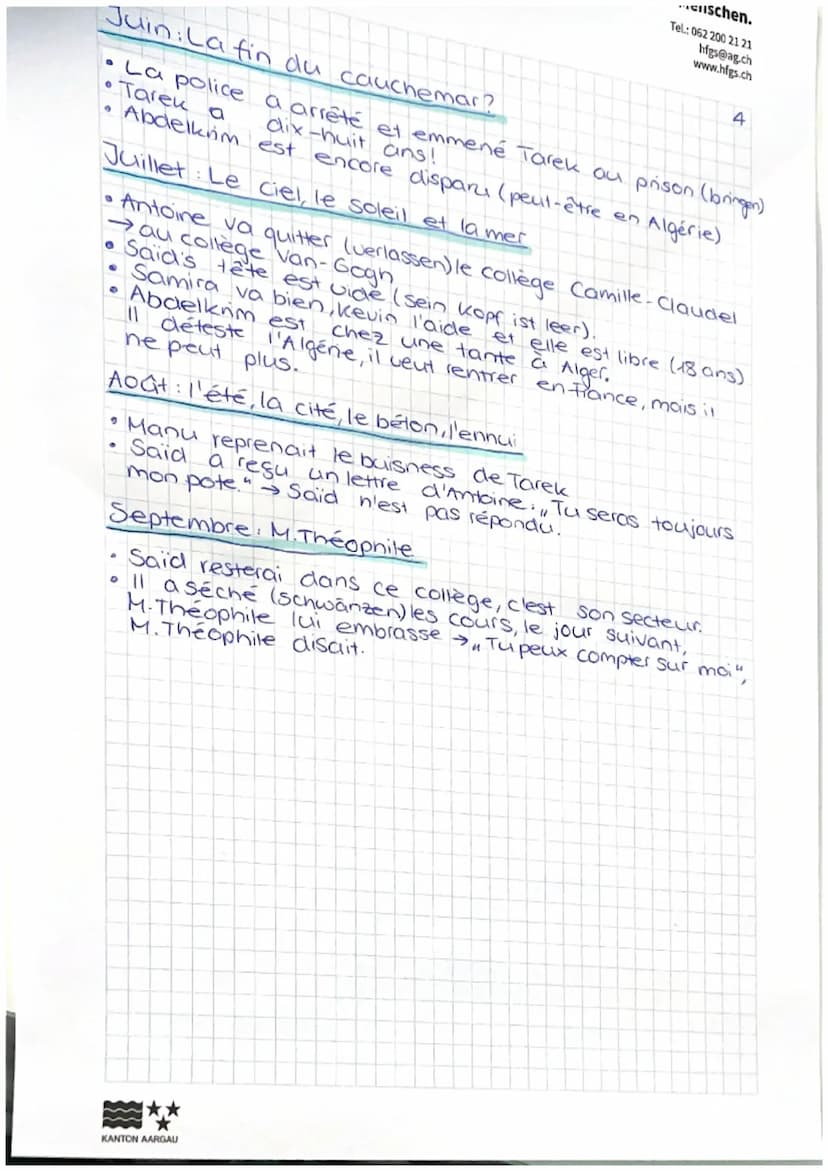 Menschen.
Tel.: 062 200 21 21
hfgs@ag.ch
www.hfgs.ch
4
Juin: La fin du cauchemar?
• La police a arrêté et emmené Tarek au prison (bringen)
• Tarek a dix-huit ans!
• Abdelkrim est encore disparu (peut-être en Algérie)
Juillet: Le ciel, le soleil et la mer
• Antoine va quitter (verlassen) le collège Camille-Claudel
→ au collège Van-Gogh
• Saïd's tête est vide (sein Kopf ist leer).
• Samira va bien, Kevin l'aide et elle est libre (18 ans)
• Abdelkrim est chez une tante à Alger.
Il déteste l'Algérie, il veut rentrer en france, mais il
ne peut plus.
Août: l'été, la cité, le béton, l'ennui
• Manu reprenait le buisness de Tarek
• Saïd a reçu un lettre d'Antoine: „Tu seras toujours
mon pote." → Saïd n'est pas répondu.
Septembre: M. Théophile
• Saïd resterai dans ce collège, c'est son secteur.
• Il a séché (schwänzen) les cours, le jour suivant,
M. Théophile lui embrasse → „Tu peux compter sur moi",
M. Théophile disait.
KANTON AARGAU